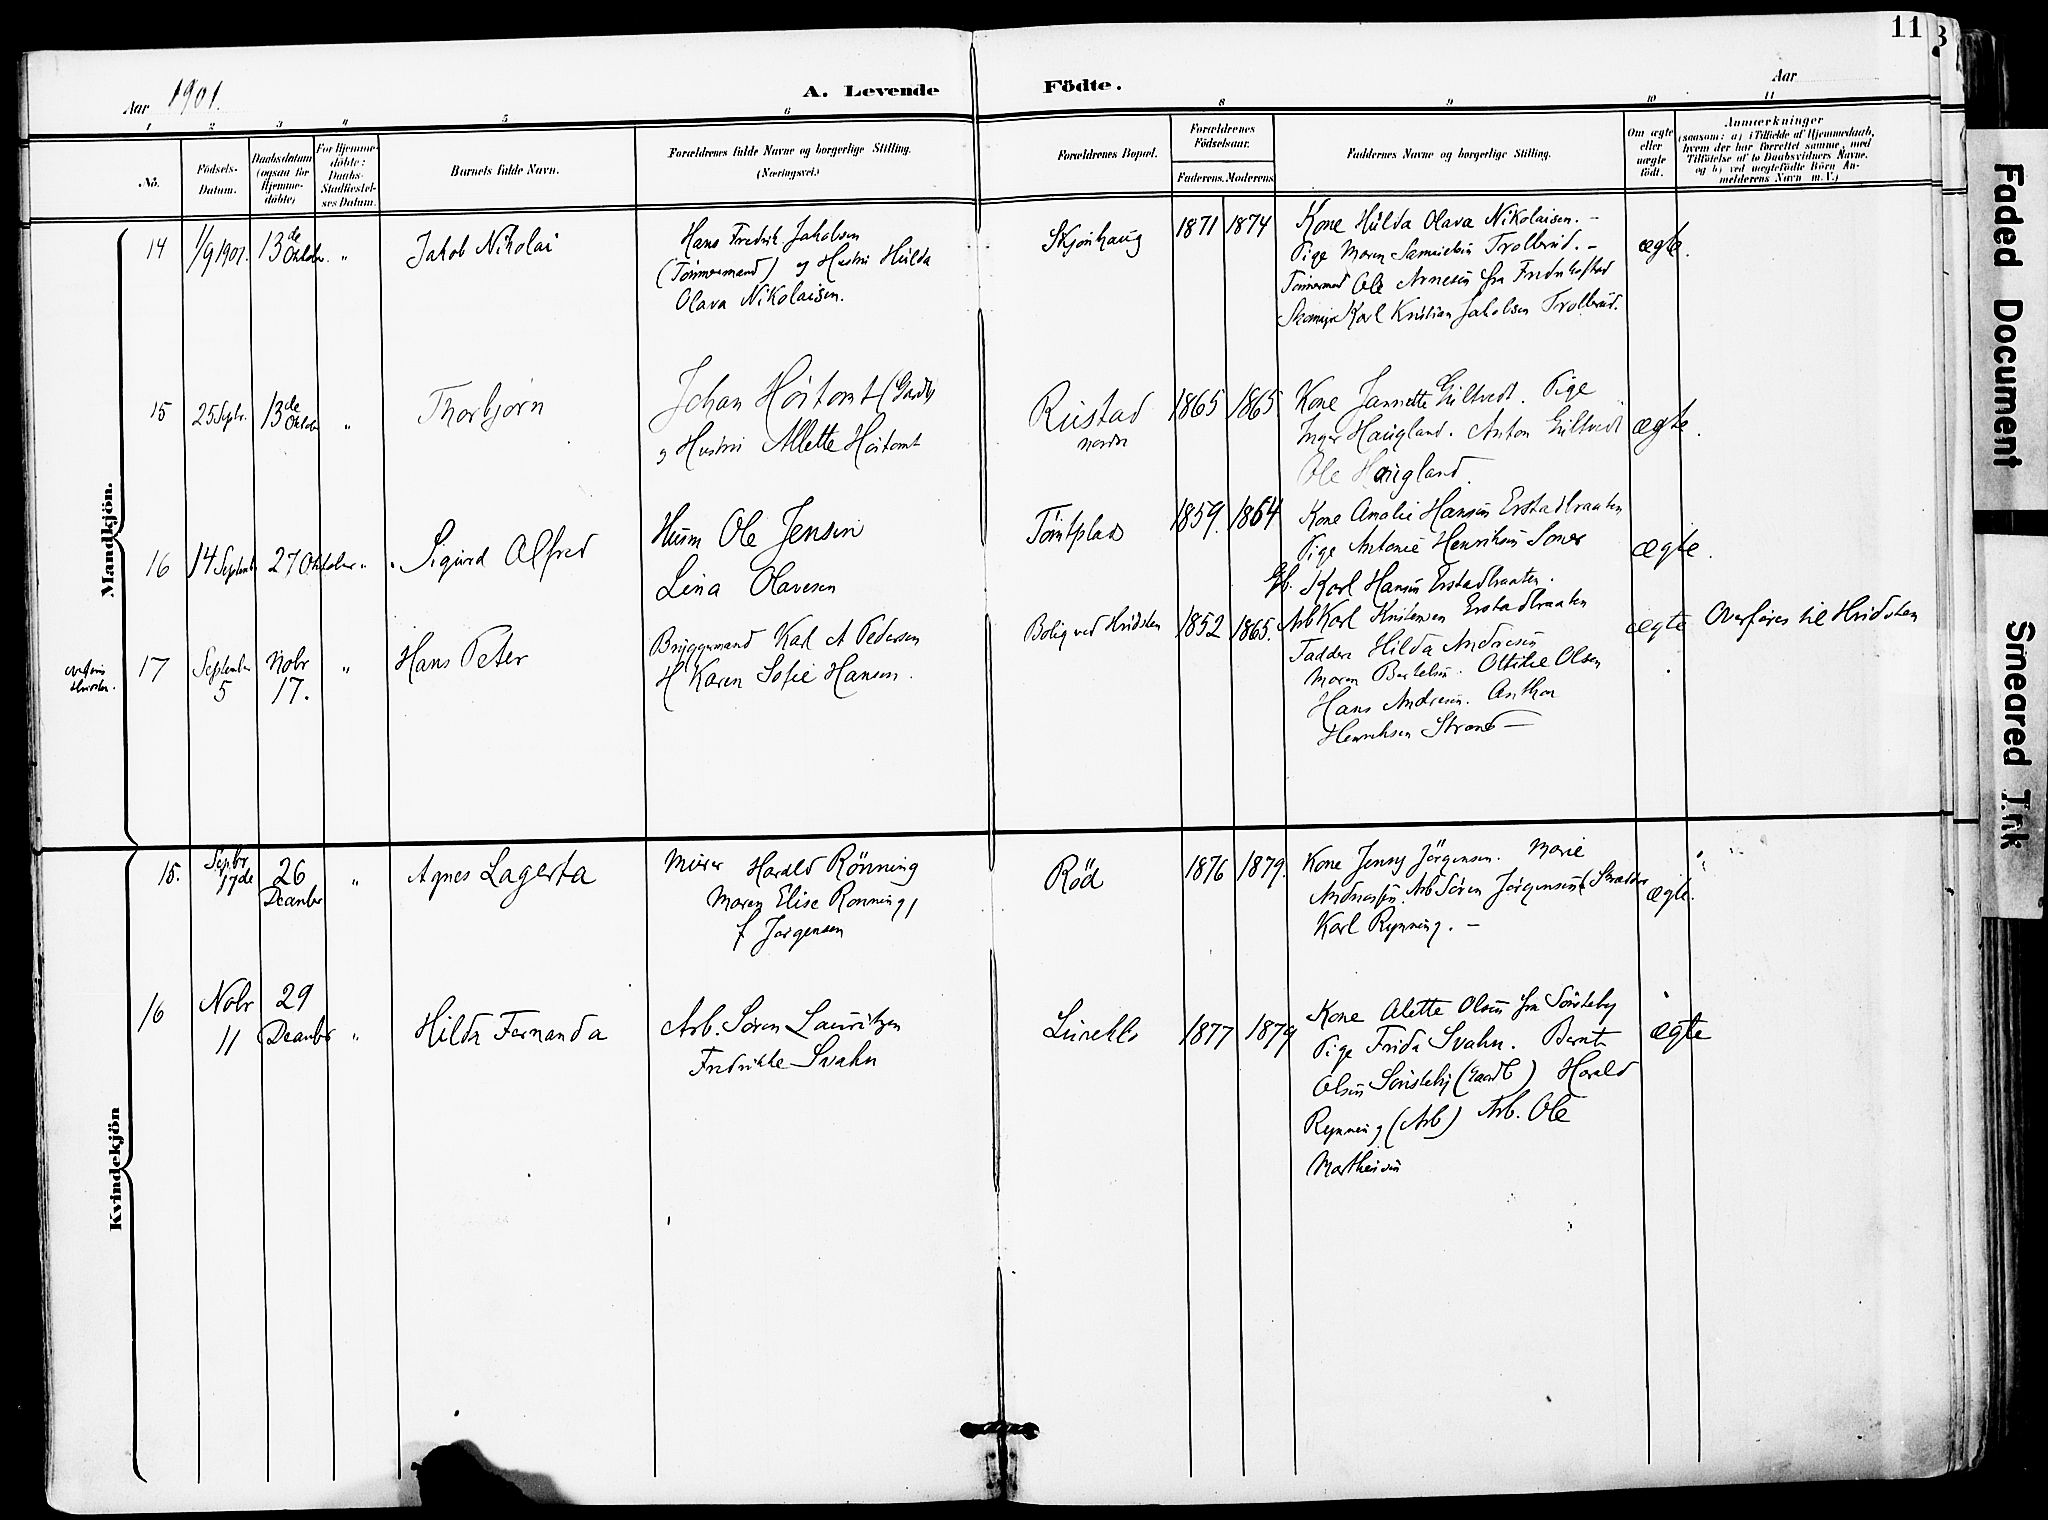 11
Aar 1901. A. Levende Födte. Aar
1 2 3 4 5 6 8 9 10 11
No.
Födsels-Datum.
Daabsdatum (ogsaa for Hjemme-döbte)
For Hjemme-döbte: Daabs-Stadfæstel-ses Datum.
Barnets fulde Navn.
Forældrenes fulde Navne og borgerlige Stilling. (Næringsvei.)
Forældrenes Bopæl.
Forældrenes Födselsaar.
Faderens. Moderens.
Faddernes Navne og borgerlige Stilling.
Om ægte eller uægte födt.
Anmærkninger
(saasom: a) i Tilfælde af Hjemmedaab, hvem der har forrettet samme, med Tilföielse af to Daabsvidners Navne, og b) ved uægtefödte Börn An-melderens Navn m. V.)
Mandkjön.
14 1/9 1901. 13de Oktober. " Jakob Nikolai
Hans Fredrik Jakobsen
(Tömmermand) og Hustru Hulda
Olava Nikolaisen.
Skjönhaug 1871 1874
Kone Hulda Olava Nikolaisen. –
Pige Maren Samuelsen Trolberud. –
Tömmermd Ole Arnesen fra Fredrikstad
Skomager Karl Kristian Jakobsen Trolberud.
ægte.
15 25 Septbr. 13de Oktober " Thorbjørn
Johan Höitomt (Gaardbr)
og Hustru Allette Höitomt
Rustad nordre 1865 1865
Kone Jannette Giltvedt. Pige
Inger Haugland. Anton Giltvedt
Ole Haugland
ægte.
16 14 Septembr 27 Oktober " Sigurd Alfred
Husm Ole Jensen
Lina Olavesen
Tomtplads 1859. 1864
Kone Amalie Hansen Erstadbraaten
Pige Antonie Henriksen Soner
Gb. Karl Hansen Erstadbraaten.
Arb Karl Kristensen Erstadbraaten
ægte.
17 September 5 Nobr 17. " Hans Peter
Bryggemand Karl A Pedersen
H Karen Sofie Hansen.
Bolig ved Hvidsten 1852 1865.
Faddere Hilda Andresen
Maren Bertelsen. Ottilie Olsen
Hans Andresen. Anthon
Henriksen Strand –
ægte Overføres til Hvidsten
Kvindekjön
15. Sepbr 17de 26 Decembr " Agnes Lagerta
Murer Harald Rönning
Maren Elise Rønning,
f Jørgensen
Röd 1876 1879.
Kone Jensy Jörgensen. Marie
Andreassen. Arb Sören Jørgensen. Skrædder
Karl Rynning. –
ægte.
16 Nobr 11 29 Decembr " Hilda Fernanda
Arb. Sören Lauritzen
Fredrikke Svahn
1877 1879
Kone Alette Olsen fra Sörsteby
Pige Frida Svahn. Bernt
Olsen Sörsteby (Gaardb) Harald
Rynning (Arb) Arb. Ole
Mathisen
ægte
Faded Document
Smeared Ink